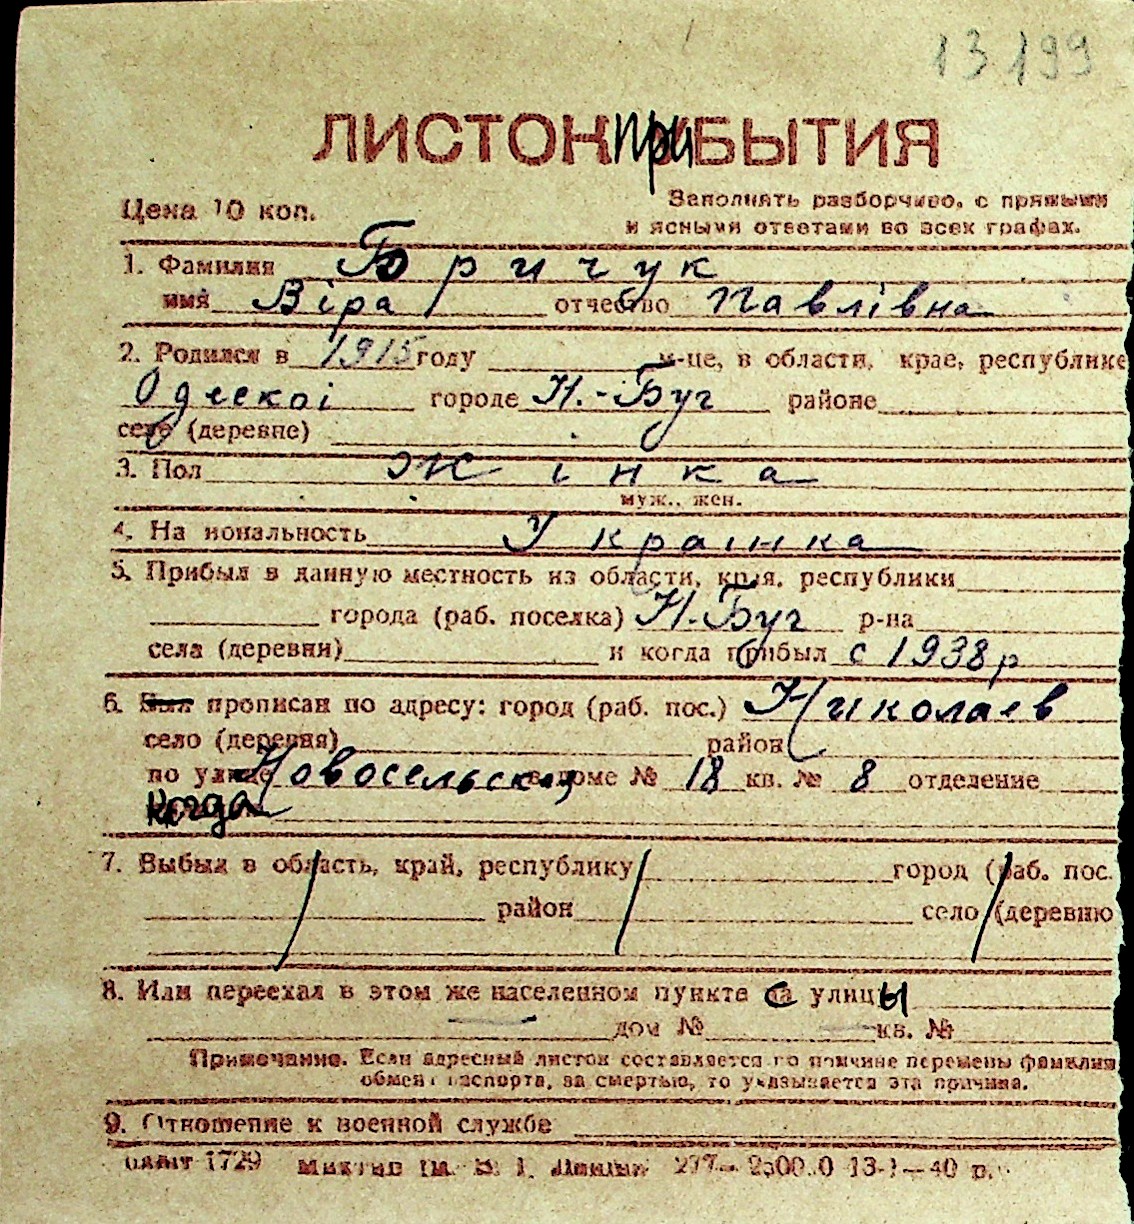 13199
ЛИСТОК ПРИБЫТИЯ
Цена 10 коп.
Заполнять разборчиво, с прямыми
и ясными ответами во всех графах.
1. Фамилия Боричук
имя Віра отчество Павлівна
2. Родился в 1915 году м-це, в области, крае, республике
Одеської городе Н.-Буг районе
село (деревне)
3. Пол Жінка
муж., жен.
4. Национальность Українка
5. Прибыл в данную местность из области, края, республики
города (раб. поселка) Н.-Буг р-на
села (деревни) и когда прибыл с 1938 р
6. Был прописан по адресу: город (раб. пос.) Николаев
село (деревня) район
по улице Новосельская в доме № 18 кв. № 8 отделение
когда
7. Выбыл в область, край, республику город (раб. пос.
район село (деревню
8. Или переехал в этом же населенном пункте с улицы
дом № кв. №
Примечание. Если адресный листок составляется по причине перемены фамилии
обмена паспорта, за смертью, то указывается эта причина.
9. Отношение к военной службе
1729 13-1-40 р.